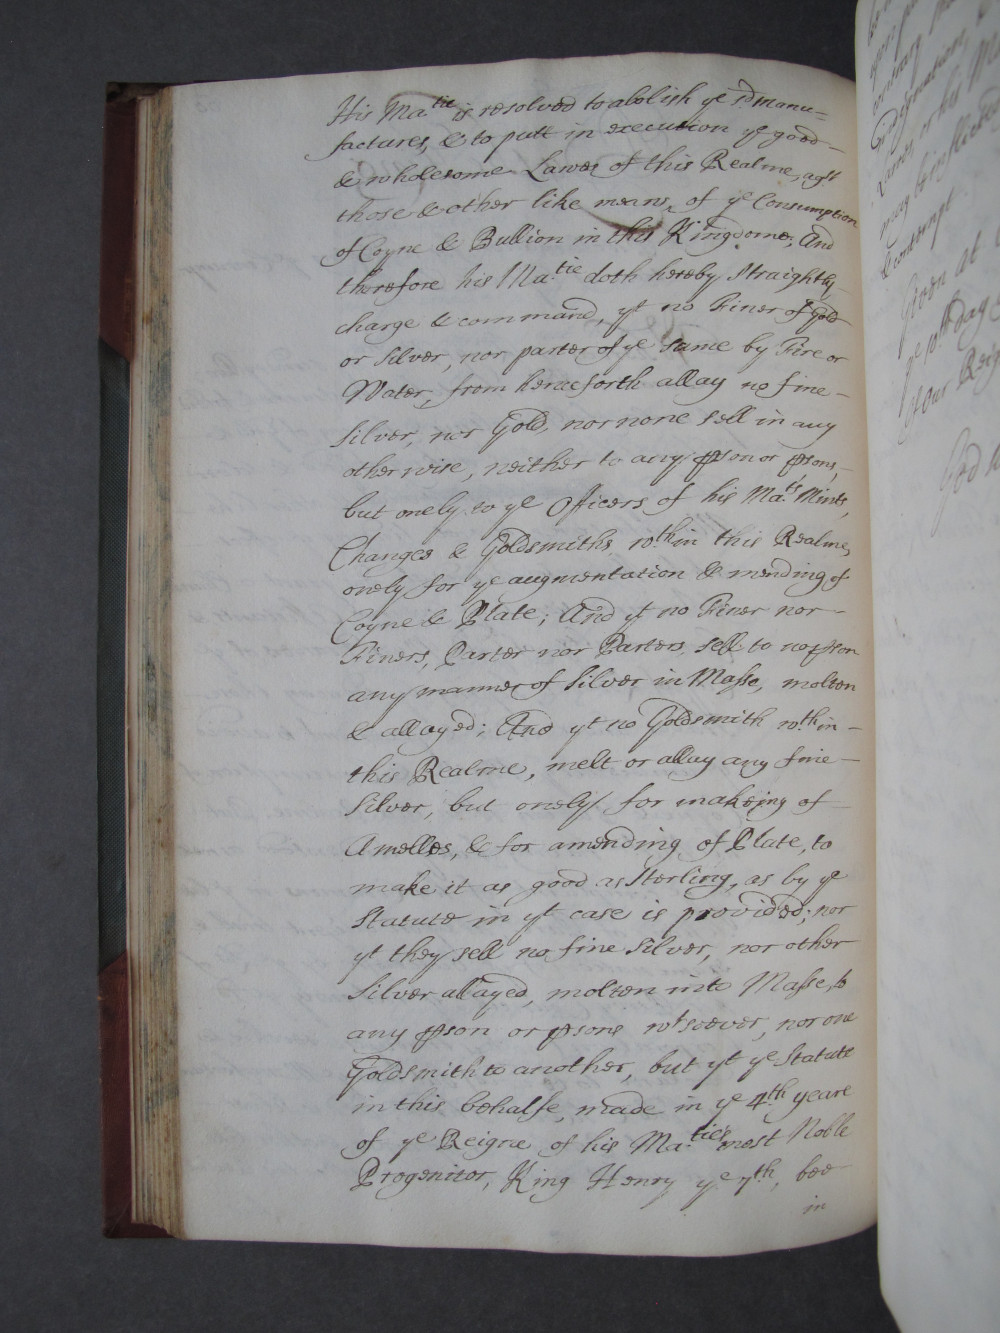 His Ma.tie is resolved to abolish ye sd manu-
factures, & to putt in execution ye good-
& wholesome Lawes of this Realme, agst
those & other like means, of ye Consumption
of Coyne & Bullion in this Kingdome; And
therefore his Ma.tie doth hereby straightly
charge & command, yt no Finer of Gold
or Silver, nor parter of ye same by Fire or
Water, from henceforth allay no fine-
Silver, nor Gold, nor none sell in any
otherwise, neither to any pson or psons,
but onely to ye Officers of his Ma.ts Mints,
Changes & Goldsmiths w.th in this Realme,
onely for ye augmentation & mending of
Coyne & Plate; And yt no Finer nor-
Finers, Parter nor Parters sell to no pson
any manner of Silver in Masse, molten
& allayed; And yt no Goldsmith w.th in-
this Realme, melt or allay any fine-
Silver, but onely for makeing of
Amelles, & for amending of Plate, to
make it as good as Sterling, as by ye
Statute in yt case is provided; nor
yt they sell no fine Silver, nor other
Silver allayed, molten into Masse, to
any pson or psons wtsoever, nor one
Goldsmith to another, but yt ye Statute
in this behalfe, made in ye 4.th yeare
of ye Reigne of his Ma.ties most Noble
Progenitor, King Henry ye 7.th, bee
in
contrary
Lawes, or his
may be inflicted
& contempt
Given at
ye 10th day
of Our Reig
God